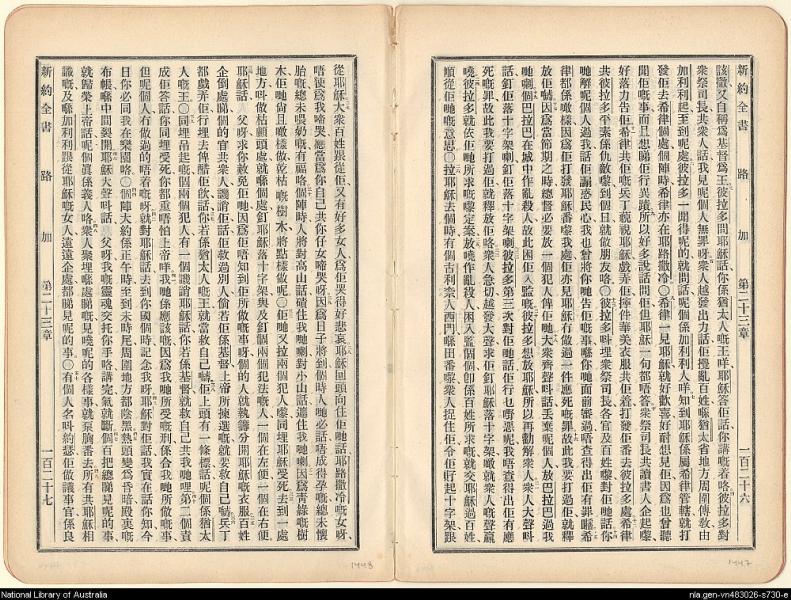 新約全書 路加 第二十三章 一百二十六
該撒又自稱爲基督爲王彼拉多問耶穌話你係猶太人嘅王咩耶穌答佢話你講嘅着咯彼拉多對
衆祭司長共衆人話我見呢個人無罪呀衆人越發出力話佢擾亂百姓喺猶太省地方周圍傳敎由
加利利起至到呢處彼拉多一聞得呢的就問話呢個係加利利人咩知到耶穌係屬希律管轄就打
發佢去希律個處個陣時希律亦在耶路撒冷〇希律一見耶穌就好歡喜好耐想見佢因爲也曾聽
聞佢嘅事而且想睇佢行異蹟所以好多說話問佢但耶穌一句都唔答衆祭司長共讀書人企起嚟
好落力告佢希律共佢嘅兵丁藐視耶穌戲弄佢件華美衣服共佢着打發佢番去彼拉多處希律
共彼拉多平素係仇敵嚟到個日就做朋友咯〇彼拉多叫埋衆祭司長各官及百姓嚟對佢哋話你
哋解呢個人嚟我處話佢惑民心我也曾將你哋告佢嘅事喺你哋面前審過唔查得出佢有罪希
律都係噉樣因爲佢打發耶穌番嚟我處佢亦見耶穌冇做過一件應死嘅罪故此我要打過佢就釋
放佢因爲當節期之時總督必要放一個犯人俾佢哋大衆齊聲呌話丟棄呢個人放巴拉巴過我
哋喇個巴拉巴在城中作亂殺人故此困佢入監嘅彼拉多想放耶穌所以再勸解衆人衆人大聲呌
話釘佢落十字架喇釘佢落十字架喇彼拉多第三次對佢哋話佢行乜嘢惡呢我唔查得出佢有應
死嘅罪故此我要打過佢就釋放佢咯衆人急切越發大聲求佢釘耶穌落十字架噉就衆人嘅聲贏
嘵彼拉多就依佢哋所求嘅嚟定案放嘵作亂殺人困入監個個卽係百姓所求嘅就交耶穌過百姓
順從佢哋嘅意思〇拉耶穌去個時有個古利奈人西門喺田番嚟衆人捉住佢令佢起十字架跟
1447
從耶穌大衆百姓跟從佢又有好多女人爲佢哭得好悲哀耶穌回頭向住佢哋話耶路撒冷嘅女呀
唔使爲我啼哭應當爲你自己共你仔女啼哭呀因爲日子將到個時人哋必話唔成得孕嘅總未懷
胎嘅總未喂奶嘅有福咯個陣時人將對高山話碴住我哋喇對小山話遮住我哋喇因爲靑綠嘅樹
木佢哋尙且噉樣做乾枯嘅樹木將點樣做呢〇佢哋又拉兩個犯人嚟同埋耶穌受死去到一處
地方呌做枯顱頭處就喺個處釘耶穌落十字架與及釘個兩個犯法嘅人一個在左便一個在右便
耶穌話父呀求你赦免佢哋因爲佢唔知到佢所做嘅事呀個的人就執籌分開耶穌嘅衣服百姓
企倒處睇個的官共衆人譏誚佢話佢救過別人倘若係基督上帝所揀選嘅就要救自己喇兵丁
都戲弄佢行埋去俾醋佢飮話你若係猶太人嘅王就當救自己喇佢上頭有一條標話呢個係猶太
人嘅王〇同埋吊起嘅個兩個犯人有一個譏誚耶穌話你若係基督就救自己共我哋喇第二個責
成佢答話你同埋受死你都重唔怕上帝咩我哋係應該嘅因爲我哋所受嘅刑係合我哋所做嘅事
但呢個人冇做過的唔着嘅呀就對耶穌話去到你國個時記念我呀耶穌對佢話我實在話你知今
日你必同我在樂園咯〇個陣大約係正午時至到未時尾周圍地方都陰黑熱頭變爲昏暗殿裏嘅
布帳喺中間裂開耶穌大聲呌話父呀我嘅靈魂交托你手咯講完氣就斷個百把總睇見呢的事
就歸榮上帝話呢個眞係義人咯衆人聚埋喺處睇嘅見嘵呢的各樣事就㧻胸番去所有共耶穌相
識嘅及喺加利利跟從耶穌嘅女人遠遠企處都睇見呢的事〇有個人名呌約瑟佢做議事官係良
新約全書 路加 第二十三章 一百二十七
1448
National Library of Australia
nla.gen-vn483026-s730-e